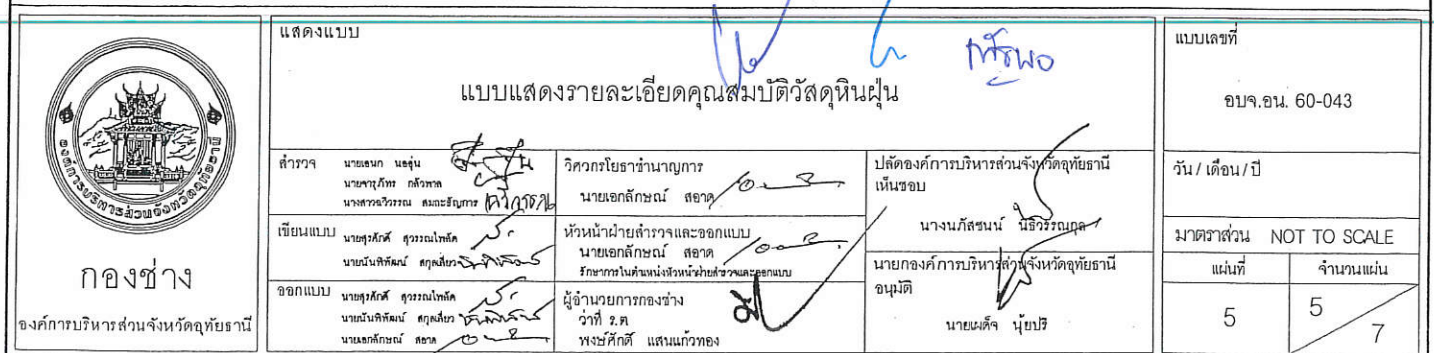 องค์การบริหารส่วนจังหวัดอุทัยธานี
กองช่าง
องค์การบริหารส่วนจังหวัดอุทัยธานี
แสดงแบบ
แบบแสดงรายละเอียดคุณสมบัติวัสดุหินฝุ่น
สำรวจ นายเอนก นอสุ่น
นายจารุภัทร กลัวพาล
นางสาวฉวีวรรณ สมถะธัญการ
เขียนแบบ นายสุรศักดิ์ สุวรรณไพลัด
นายนันทิพัฒน์ สกุลเลี่ยว
ออกแบบ นายสุรศักดิ์ สุวรรณไพลัด
นายนันทิพัฒน์ สกุลเลี่ยว
นายเอกลักษณ์ สอาด
วิศวกรโยธาชำนาญการ
นายเอกลักษณ์ สอาด
หัวหน้าฝ่ายสำรวจและออกแบบ
นายเอกลักษณ์ สอาด
รักษาการในตำแหน่งหัวหน้าฝ่ายสำรวจและออกแบบ
ผู้อำนวยการกองช่าง
ว่าที่ ร.ต
พงษ์ศักดิ์ แสนแก้วทอง
ปลัดองค์การบริหารส่วนจังหวัดอุทัยธานี
เห็นชอบ
นางนภัสชนน์ นิธิวรรณกุล
นายกองค์การบริหารส่วนจังหวัดอุทัยธานี
อนุมัติ
นายเผด็จ นุ้ยปรี
แบบเลขที่
อบจ.อน. 60-043
วัน / เดือน / ปี
มาตราส่วน NOT TO SCALE
แผ่นที่ จำนวนแผ่น
5 5/7